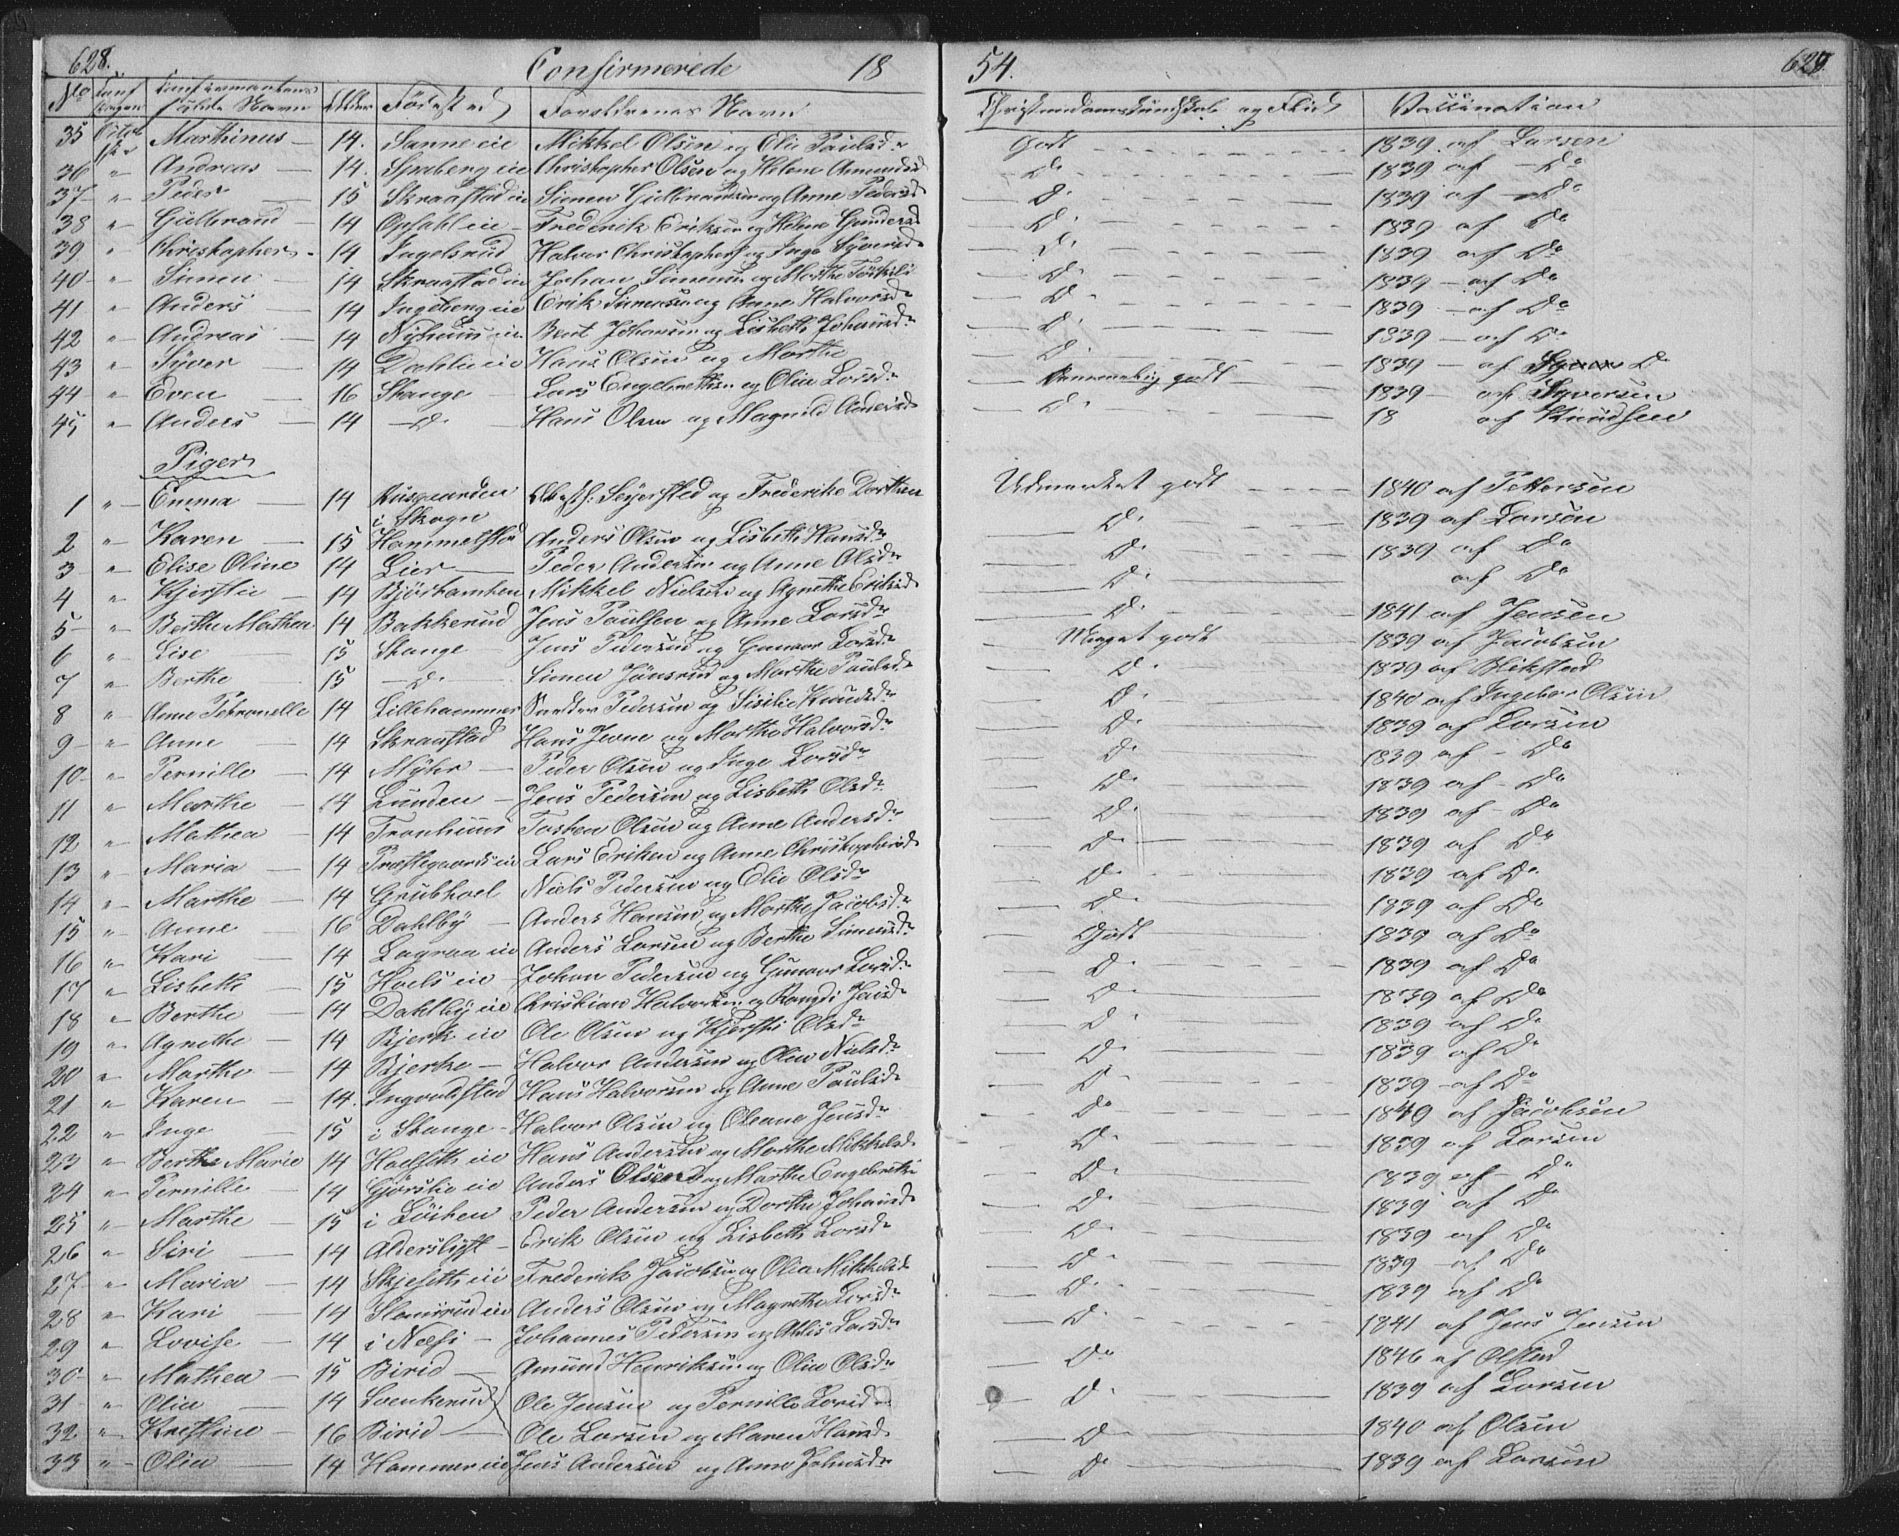 628. Confirmerede 18 54. 629.
No Alder Fødested Forældrenes Navn Christendomskundskab og Flid Vaccination
35 Marthinus 14. Sanne eie Mikkel Olsen og Olia Paulsd. Godt 1839 af Larsen
36 " Andreas 14. Spaberg eie Christopher Olsen og Helene Amundsd Do 1839 af Do
37 " Peder 15 Skraastad eie Simen Gulbrandsen og Anne Pedersd Do 1839 af Do
38 " Gulbrand 14 Opsahl eie Frederik Eriksen og Helene Gundersd Do 1839 af Do
39 " Christopher 14 Ingelsrud Halvor Christophers og Inge Syversd Do 1839 af Do
40 " Simen 14 Skraastad eie Johan Simensen og Marthe Do 1839 af Do
41 " Anders 14 Ingeberg eie Erik Simensen og Anne Halvorsd Do 1839 af Do
42 " Andreas 14 Nyhuus eie Bent Johansen og Lisbeth Johansd Do 1839 af Do
43 " Syver 14 Dahlie eie Hans Olsen og Marthe Do 1839 af Do
44 " Even 16 Stange Lars Engebrethsen og Olia Larsd Temmelig godt 1839 af Syversen
45 " Anders 14 Do Hans Olsen og Magnild Andersd Do 18 af Knudsen
Piger
1 " Emma 14 Huusgaarden Seyersted og Frederike Dorthea Udmærket godt 1840 af Pettersen
i Skogn
2 " Karen 15 Hommelstad Anders Olsen og Lisbeth Hansd Do 1839 af Larsen
3 " Elise Oline 14 Lier Peder Andersen og Anne Olsd Do 1839 af Do
4 " Kjerstie 14 Mikkel Nielsen og Agnethe Eriksd Do af Do
5 " Berthe Mathea 14 Bakkerud Jens Paulsen og Anne Larsd Do 1841 af Jensen
6 " Lise 15 Stange Jens Pedersen og Gunnor Larsd Meget godt 1839 af Jacobsen
7 " Berthe 15 Do Simen Jønsrud og Marthe Paulsd Do 1839 af Wikstad
8 " Anne Petronelle 14 Lillehammer Pedersen og Sisilie Knudsd Do 1840 af Ingebor Olsen
9 " Anne 14 Skraastad Hans Jevne og Marthe Halvorsd Do 1839 af Larsen
10 " Pernille 14 Myhr Peder Olsen og Inge Larsd Do 1839 af Do
11 " Marthe 14 Lunden Jens Pedersen og Lisbeth Olsd Do 1839 af Do
12 " Mathea 14 Tronhuus Torsten Olsen og Anne Andersd Do 1839 af Do
13 " Maria 14 Præstegaards eie Lars Eriksen og Anne Christophersd Do 1839 af Do
14 " Marthe 14 Grubhoel Niels Pedersen og Olia Olsd Do 1839 af Do
15 " Anne 16 Dahlby Anders Hansen og Marthe Jacobsd Do 1839 af Do
16 " Kari 14 Lageraa eie Anders Larsen og Berthe Simensd Godt 1839 af Do
17 " Lisbeth 15 Hoels eie Johan Pedersen og Gunnor Larsd Do 1839 af Do
18 " Berthe 14 Dahlby eie Christian Halvorsen og Rangdi Jensd Do 1839 af Do
19 " Agnethe 14 Bjerk eie Ole Olsen og Kjersti Olsd Do 1839 af Do
20 " Marthe 14 Bjerke Halvor Andersen og Olia Nielsd Do 1839 af Do
21 " Karen 14. Ingvaldstad Hans Halvorsen og Anne Paulsd Do 1839 af Do
22 " Inge 15 i Stange Halvor Olsen og Oleane Jensd Do 1849 af Jacobsen
23 " Berthe Marie 14 Hoelseth eie Hans Andersen og Marthe Mikkelsd Do 1839 af Larsen
24 " Pernille 14 Gjørslie eie Anders Olsen og Marthe Engebrets Do 1839 af Do
25 " Marthe 15 i Løiten Peder Andersen og Dorthe Johansd Do 1839 af Do
26 " Siri 14 Alderslyst Erik Olsen og Lisbeth Larsd Do 1839 af Do
27 " Maria 14 Skjeseth eie Frederik Jacobsen og Olia Mikkelsd Do 1839 af Do
28 " Kari 14 Slemsrud eie Anders Olsen og Magrethe Larsd Do 1839 af Do
29 " Lovise 14 i Næs Johannes Pedersen og Athis Larsd Do 1841 af Jens Jensen
30 " Mathea 15 Birid Amund Henriksen og Olia Olsd Do 1846 af Olstad
31 " Olia 14 Soenkerud Ole Jensen og Pernille Larsd Do 1839 af Larsen
32 " Kristine 16 Birid Ole Larsen og Maren Hansd Do 1840 af Olsen
33 " Olia 14 Hammer eie Jens Andersen og Anne Johnsd Do 1839 af Larsen